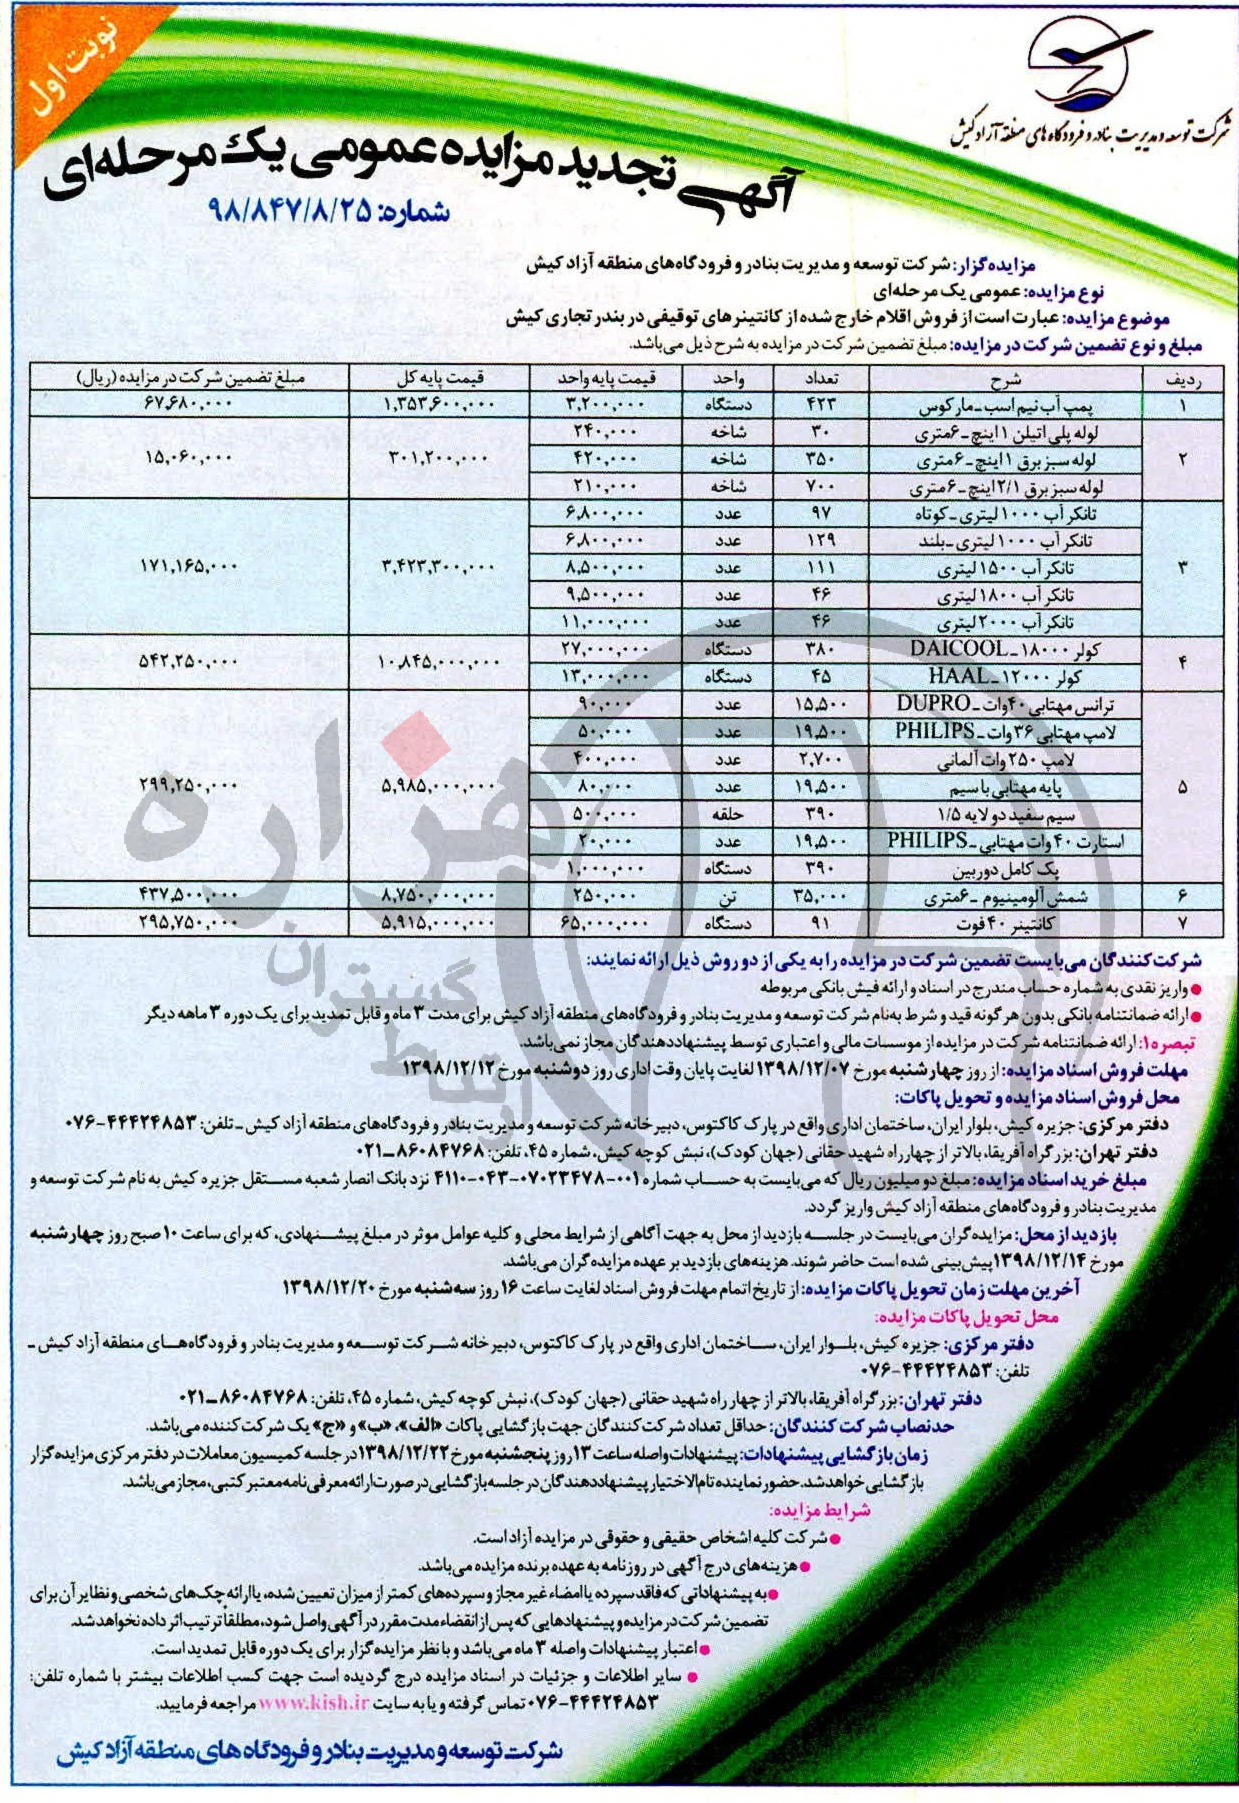 نوبت اول
شرکت توسعه و مدیریت بنادر و فرودگاه های منطقه آزاد کیش
آگهی تجدید مزایده عمومی یک مرحله‌ای
شماره: ۹۸/۸۴۷/۸/۲۵
مزایده‌گزار: شرکت توسعه و مدیریت بنادر و فرودگاه‌های منطقه آزاد کیش
نوع مزایده: عمومی یک مرحله‌ای
موضوع مزایده: عبارت است از فروش اقلام خارج شده از کانتینرهای توقیفی در بندر تجاری کیش
مبلغ و نوع تضمین شرکت در مزایده: مبلغ تضمین شرکت در مزایده به شرح ذیل می‌باشد.
ردیف شرح تعداد واحد قیمت پایه واحد قیمت پایه کل مبلغ تضمین شرکت در مزایده (ریال)
۱ پمپ آب نیم اسب_مارکوس ۴۲۳ دستگاه ۳,۲۰۰,۰۰۰ ۱,۳۵۳,۶۰۰,۰۰۰ ۶۷,۶۸۰,۰۰۰
۲ لوله پلی اتیلن ۱ اینچ_۶متری ۳۰ شاخه ۲۴۰,۰۰۰ ۳۰۱,۲۰۰,۰۰۰ ۱۵,۰۶۰,۰۰۰
لوله سبز برق ۱ اینچ_۶متری ۳۵۰ شاخه ۴۲۰,۰۰۰
لوله سبز برق ۲/۱ اینچ_۶متری ۷۰۰ شاخه ۲۱۰,۰۰۰
۳ تانکر آب ۱۰۰۰ لیتری_کوتاه ۹۷ عدد ۶,۸۰۰,۰۰۰ ۳,۴۲۳,۳۰۰,۰۰۰ ۱۷۱,۱۶۵,۰۰۰
تانکر آب ۱۰۰۰ لیتری_بلند ۱۲۹ عدد ۶,۸۰۰,۰۰۰
تانکر آب ۱۵۰۰ لیتری ۱۱۱ عدد ۸,۵۰۰,۰۰۰
تانکر آب ۱۸۰۰ لیتری ۴۶ عدد ۹,۵۰۰,۰۰۰
تانکر آب ۲۰۰۰ لیتری ۴۶ عدد ۱۱,۰۰۰,۰۰۰
۴ کولر ۱۸۰۰۰_DAICOOL ۳۸۰ دستگاه ۲۷,۰۰۰,۰۰۰ ۱۰,۸۴۵,۰۰۰,۰۰۰ ۵۴۲,۲۵۰,۰۰۰
کولر ۱۲۰۰۰_HAAL ۴۵ دستگاه ۱۳,۰۰۰,۰۰۰
۵ ترانس مهتابی ۴۰وات_DUPRO ۱۵,۵۰۰ عدد ۹۰,۰۰۰ ۵,۹۸۵,۰۰۰,۰۰۰ ۲۹۹,۲۵۰,۰۰۰
لامپ مهتابی ۳۶ وات_PHILIPS ۱۹,۵۰۰ عدد ۵۰,۰۰۰
لامپ ۲۵۰ وات آلمانی ۲,۷۰۰ عدد ۴۰۰,۰۰۰
پایه مهتابی با سیم ۱۹,۵۰۰ عدد ۸۰,۰۰۰
سیم سفید دو لایه ۱/۵ ۳۹۰ حلقه ۵۰۰,۰۰۰
استارت ۴۰ وات مهتابی_PHILIPS ۱۹,۵۰۰ عدد ۲۰,۰۰۰
پک کامل دوربین ۳۹۰ دستگاه ۱,۰۰۰,۰۰۰
۶ شمش آلومینیوم _۶متری ۳۵,۰۰۰ تن ۲۵۰,۰۰۰ ۸,۷۵۰,۰۰۰,۰۰۰ ۴۳۷,۵۰۰,۰۰۰
۷ کانتینر ۴۰ فوت ۹۱ دستگاه ۶۵,۰۰۰,۰۰۰ ۵,۹۱۵,۰۰۰,۰۰۰ ۲۹۵,۷۵۰,۰۰۰
شرکت کنندگان می‌بایست تضمین شرکت در مزایده را به یکی از دو روش ذیل ارائه نمایند:
● واریز نقدی به شماره حساب مندرج در اسناد و ارائه فیش بانکی مربوطه
● ارائه ضمانتنامه بانکی بدون هر گونه قید و شرط به‌نام شرکت توسعه و مدیریت بنادر و فرودگاه‌های منطقه آزاد کیش برای مدت ۳ ماه و قابل تمدید برای یک دوره ۳ ماهه دیگر
تبصره۱: ارائه ضمانتنامه شرکت در مزایده از موسسات مالی و اعتباری توسط پیشنهاددهندگان مجاز نمی‌باشد.
مهلت فروش اسناد مزایده: از روز چهارشنبه مورخ ۱۳۹۸/۱۲/۰۷ لغایت پایان وقت اداری روز دوشنبه مورخ ۱۳۹۸/۱۲/۱۲
محل فروش اسناد مزایده و تحویل پاکات:
دفتر مرکزی: جزیره کیش، بلوار ایران، ساختمان اداری واقع در پارک کاکتوس، دبیرخانه شرکت توسعه و مدیریت بنادر و فرودگاه‌های منطقه آزاد کیش _ تلفن: ۴۴۴۲۴۸۵۳-۰۷۶
دفتر تهران: بزرگراه آفریقا، بالاتر از چهارراه شهید حقانی (جهان کودک)، نبش کوچه کیش، شماره ۴۵، تلفن: ۸۶۰۸۴۷۶۸_۰۲۱
مبلغ خرید اسناد مزایده: مبلغ دو میلیون ریال که می‌بایست به حساب شماره ۰۰۱-۰۷۰۲۳۴۷۸-۰۴۳-۴۱۱۰ نزد بانک انصار شعبه مستقل جزیره کیش به نام شرکت توسعه و
مدیریت بنادر و فرودگاه‌های منطقه آزاد کیش واریز گردد.
بازدید از محل: مزایده‌گران می‌بایست در جلسه بازدید از محل به جهت آگاهی از شرایط محلی و کلیه عوامل موثر در مبلغ پیشنهادی، که برای ساعت ۱۰ صبح روز چهارشنبه
مورخ ۱۳۹۸/۱۲/۱۴ پیش‌بینی شده است حاضر شوند. هزینه‌های بازدید بر عهده مزایده‌گران می‌باشد.
آخرین مهلت زمان تحویل پاکات مزایده: از تاریخ اتمام مهلت فروش اسناد لغایت ساعت ۱۶ روز سه‌شنبه مورخ ۱۳۹۸/۱۲/۲۰
محل تحویل پاکات مزایده:
دفتر مرکزی: جزیره کیش، بلوار ایران، ساختمان اداری واقع در پارک کاکتوس، دبیرخانه شرکت توسعه و مدیریت بنادر و فرودگاه‌های منطقه آزاد کیش _
تلفن: ۴۴۴۲۴۸۵۳-۰۷۶
دفتر تهران: بزرگراه آفریقا، بالاتر از چهارراه شهید حقانی (جهان کودک)، نبش کوچه کیش، شماره ۴۵، تلفن: ۸۶۰۸۴۷۶۸_۰۲۱
حدنصاب شرکت کنندگان: حداقل تعداد شرکت‌کنندگان جهت بازگشایی پاکات «الف»، «ب» و «ج» یک شرکت کننده می‌باشد.
زمان بازگشایی پیشنهادات: پیشنهادات واصله ساعت ۱۳ روز پنجشنبه مورخ ۱۳۹۸/۱۲/۲۲ در جلسه کمیسیون معاملات در دفتر مرکزی مزایده‌گزار
بازگشایی خواهد شد. حضور نماینده تام‌الاختیار پیشنهاددهندگان در جلسه بازگشایی در صورت ارائه معرفی‌نامه معتبر کتبی، مجاز می‌باشد.
شرایط مزایده:
● شرکت کلیه اشخاص حقیقی و حقوقی در مزایده آزاد است.
● هزینه‌های درج آگهی در روزنامه به عهده برنده مزایده می‌باشد.
● به پیشنهاداتی که فاقد سپرده یا امضاء غیر مجاز و سپرده‌های کمتر از میزان تعیین شده، یا ارائه چک‌های شخصی و نظایر آن برای
تضمین شرکت در مزایده و پیشنهادهایی که پس از انقضاء مدت مقرر در آگهی واصل شود، مطلقاً ترتیب اثر داده نخواهد شد.
● اعتبار پیشنهادات واصله ۳ ماه می‌باشد و با نظر مزایده‌گزار برای یک دوره قابل تمدید است.
● سایر اطلاعات و جزئیات در اسناد مزایده درج گردیده است جهت کسب اطلاعات بیشتر با شماره تلفن:
۴۴۴۲۴۸۵۳-۰۷۶ تماس گرفته و یا به سایت www.kish.ir مراجعه فرمایید.
شرکت توسعه و مدیریت بنادر و فرودگاه های منطقه آزاد کیش
هزاره
گستران
ارتباط